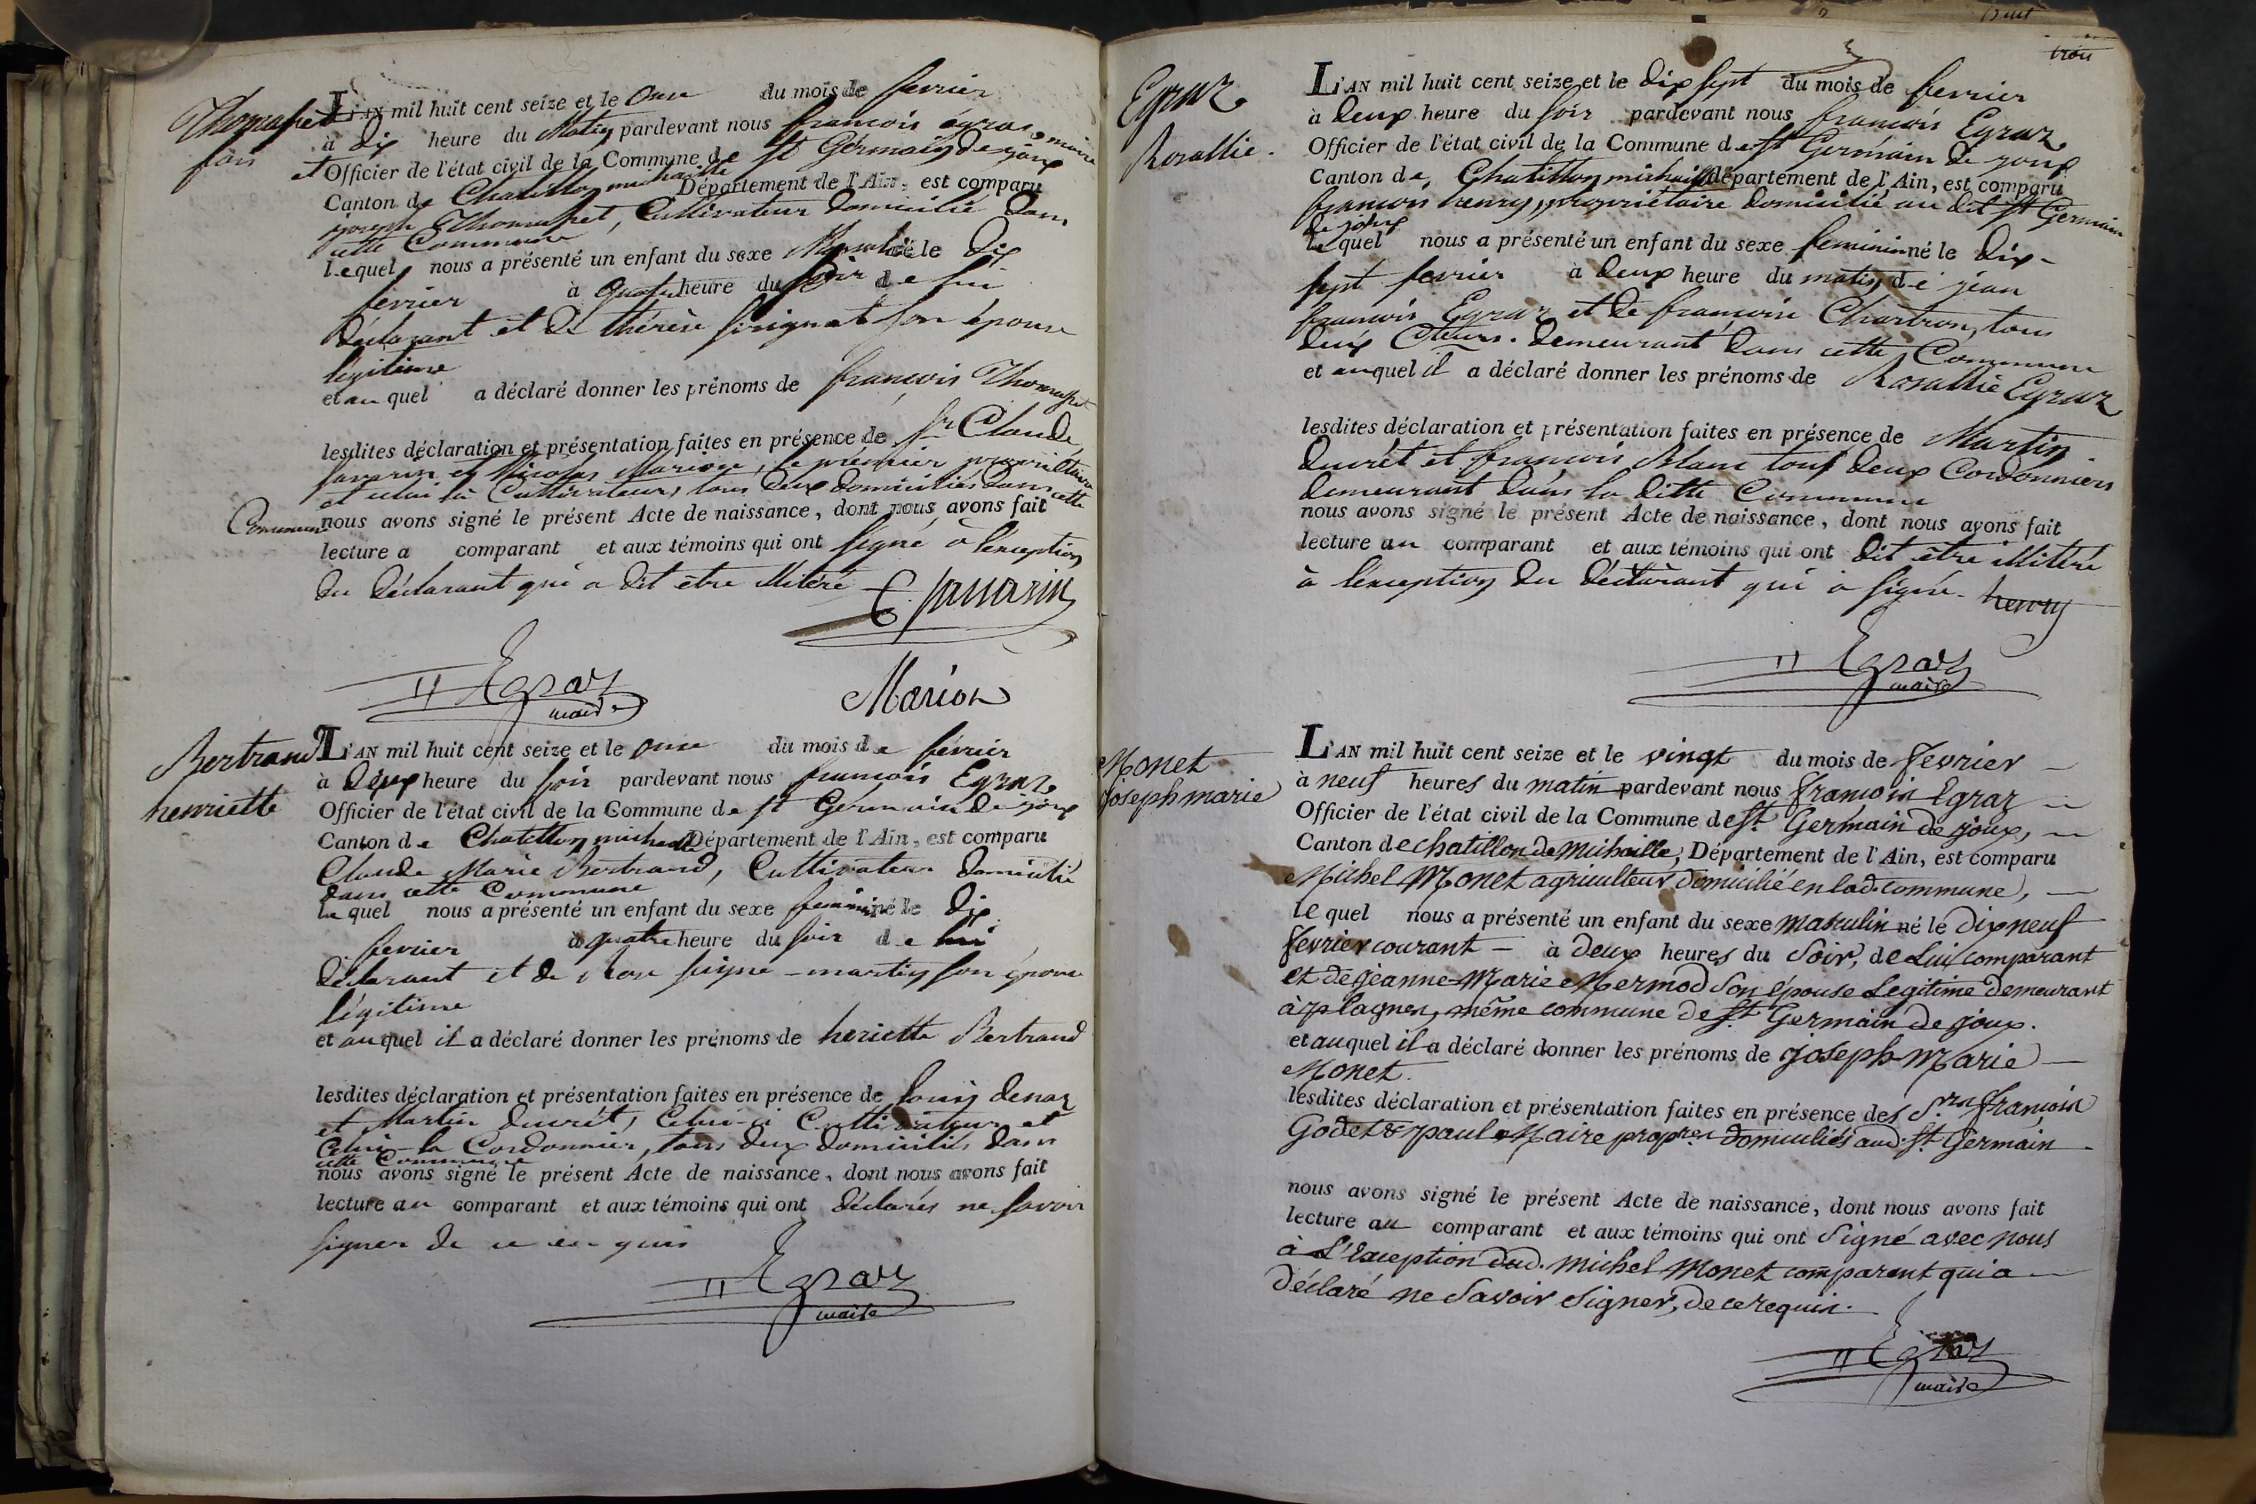 Thomasset
fois
L'AN mil huit cent seize et le onze du mois de fevrier
à dix heure du Matin pardevant nous francois égraz maire
et Officier de l'état civil de la Commune de st Germain de joux
Canton de Chatillon michaille Département de l'Ain, est comparu
joseph Thomasset, Cultivateur domicilié dans
cette Commune
lequel nous a présenté un enfant du sexe Masculin né le dix
fevrier à quatre heure du soir de lui
déclarant et de thérèse son épouse
légitime
et au quel a déclaré donner les prénoms de françois Thomasset
lesdites déclaration et présentation faites en présence de sr Claude
savarin et Nicolas Marion, le prémier
et celui là Cultivateur, tous deux domiciliés dans cette
Commune nous avons signé le présent Acte de naissance, dont nous avons fait
lecture a comparant et aux témoins qui ont signé à l'exception
du déclarant qui a dit être illitéré C. savarin
Egraz
maire
Marion
Bertrand
henriette
L'AN mil huit cent seize et le onze du mois de février
à deux heure du soir pardevant nous francois Egraz
Officier de l'état civil de la Commune de st Gérmain de joux
Canton de Chatillon michaille Département de l'Ain, est comparu
Claude Marie Bertrand, Cultivateur domicilié
dans cette Commune
le quel nous a présenté un enfant du sexe feminin né le dix
fevrier à quatre heure du soir de lui
déclarant et de Rose martin son épouse
légitime
et au quel il a déclaré donner les prénoms de heriette Bertrand
lesdites déclaration et présentation faites en présence de louis denaz
et Martin ducrét, Celui-ci Cultivateur et
Celui-la Cordonnier, tous deux domiciliés dans
cette Commune
nous avons signé le présent Acte de naissance, dont nous avons fait
lecture au comparant et aux témoins qui ont déclarés ne savoir
signer de ce en quis
Egraz
maire
trois
Egraz
Rosallie.
L'AN mil huit cent seize et le dix sept du mois de fevrier
à deux heure du soir pardevant nous francois Egraz
Officier de l'état civil de la Commune de st Germain de joux
Canton de Chatillon michaille département de l'Ain, est comparu
francois henry, propriétaire domicilié au dit st Germain
de joux
le quel nous a présenté un enfant du sexe feminin né le dix-
sept fevrier à deux heure du matin de jean
francois Egraz et de francoise Chartron, tous
deux demeurant dans cette Commune
et au quel il a déclaré donner les prénoms de Rosallie Egraz
lesdites déclaration et présentation faites en présence de Martin
ducrét et francois Blanc tous deux Cordonniers
demeurant dans la ditte Commune
nous avons signé le présent Acte de naissance, dont nous avons fait
lecture au comparant et aux témoins qui ont dit etre illitéré
à l'exception du déclarant qui a signé. henry
Egraz
maire
Monet
joseph marie
L'AN mil huit cent seize et le vingt du mois de fevrier
à neuf heures du matin pardevant nous francois Egraz
Officier de l'état civil de la Commune de St. Germain de joux,
Canton de chatillon de Michaille, Département de l'Ain, est comparu
Michel Monet agriculteur domicilié en lad. commune,
le quel nous a présenté un enfant du sexe masculin né le dix neuf
fevrier courant à deux heures du Soir, de Lui comparant
et de jeanne-Marie Mermod Son épouse Legitime demeurant
à plagnes, même commune de St. Germain de joux.
et au quel il a déclaré donner les prénoms de joseph-Marie
Monet.
lesdites déclaration et présentation faites en présence des S.rs francois
Godet & paul Maire propres. domiciliés aud. St. Germain
nous avons signé le présent Acte de naissance, dont nous avons fait
lecture au comparant et aux témoins qui ont Signé avec nous
à L'Exception dud. Michel Monet comparent qui a
déclaré ne Savoir Signer, de ce requis.
Egraz
maire